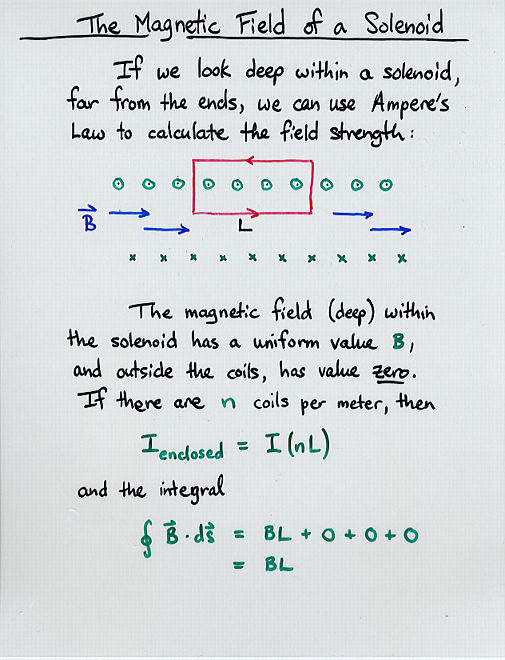 The Magnetic Field of a Solenoid
If we look deep within a solenoid,
far from the ends, we can use Ampere's
Law to calculate the field strength:
B⃗
L
x x x x x x x x x x
The magnetic field (deep) within
the solenoid has a uniform value B,
and outside the coils, has value zero.
If there are n coils per meter, then
I enclosed = I (nL)
and the integral
∮ B⃗ · ds⃗ = BL + 0 + 0 + 0
= BL